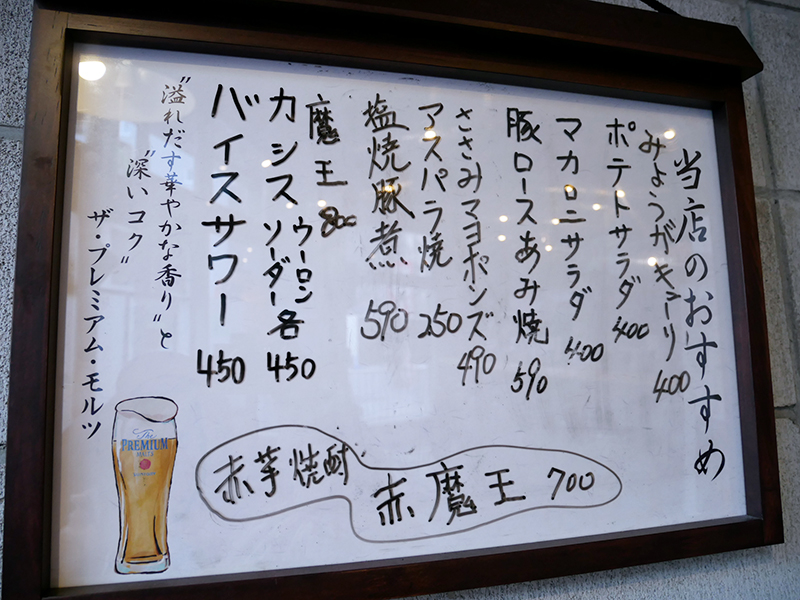 当店のおすすめ
みょうがキューリ 400
ポテトサラダ 400
マカロニサラダ 400
豚ロースあみ焼 590
ささみマヨポンズ 490
アスパラ焼 250
塩焼豚煮 590
魔王 800
カシス ウーロン ソーダー 各 450
バイスサワー 450
"溢れだす華やかな香り"と
"深いコク"
ザ・プレミアム・モルツ
赤芋焼酎
赤魔王 700
The PREMIUM MALT'S